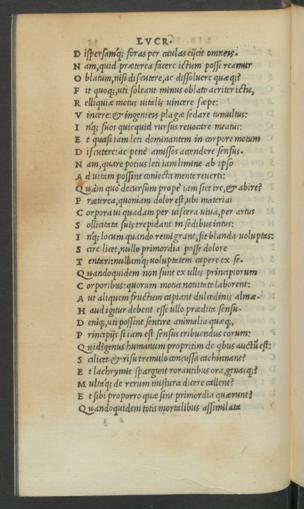 LVCR.
D ispersamq; foras per caulas eijcit omneis.
N am, quid præterea facere ictum posse reamur
O blatum, nisi discutere, ac dissoluere quæq;?
F it quoq;, uti soleant minus oblato acriter ictu,
R elliquiæ motus uitalis uincere sæpe:
V incere: & ingenteis plagæ sedare tumultus:
I nq; suos quicquid rursus reuocare meatus:
E t quasi iam leti dominantem in corpore motum
D iscutere: ac penè amissos accendere sensus.
N am, quare potius leti iam limine ab ipso
A d uitam possint coniecta mente reuerti:
Q uàm quo decursum propè iam siet ire, & abire?
P ræterea, quoniam dolor est, ubi materiai
C orpora ui quadam per uiscera uiua, per artus
S ollicitata suis trepidant in sedibus intus:
I nq; locum quando remigrant, fit blanda uoluptas:
S cire licet, nullo primordia posse dolore
T entari: nullamq; uoluptatem capere ex se.
Q uandoquidem non sunt ex ullis principiorum
C orporibus: quorum motus nouitate laborent:
A ut aliquem fructum capiant dulcedinis almæ.
H aud igitur debent esse ullo prædita sensu.
D eniq, uti possint sentire animalia quæq,
P rincipijs si iam est sensus tribuendus eorum:
Quid? genus humanum propritim de qbus auctũ est:
S cilicet & risu tremulo concussa cachinnant?
E t lachrymis spargunt rorantibus ora, genasq;?
M ultaq; de rerum mistura dicere callent?
E t sibi proporro quæ sint primordia quærunt?
Q uandoquidem totis mortalibus assimilata